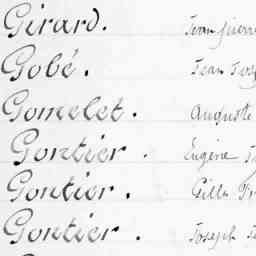 Girard. Jean Pierre
Gobé. Jean
Gomelet. Auguste
Gontier. Eugène
Gontier. Gilles
Gontier. Joseph